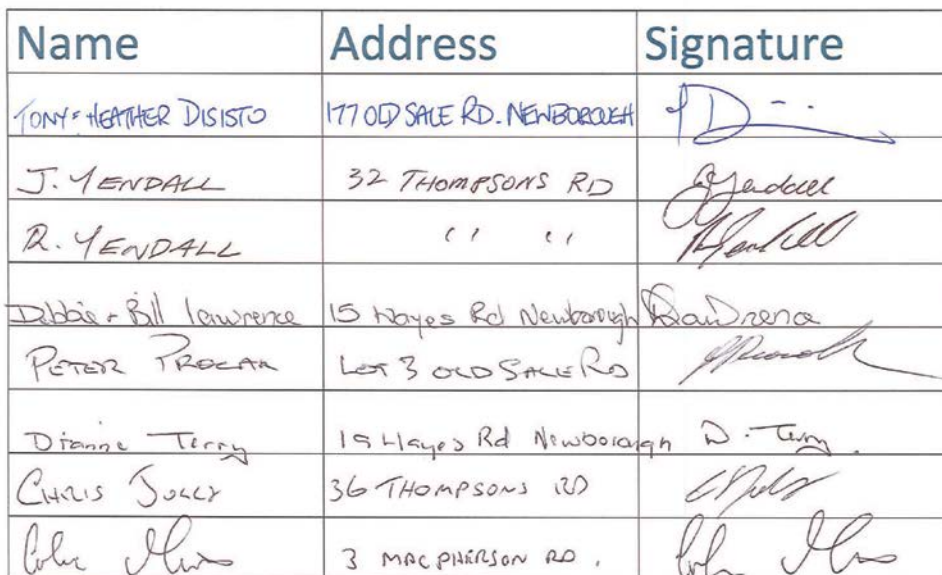 Name Address Signature
TONY & HEATHER DISISTO 177 OLD SALE RD. NEWBOROUGH
J. YENDALL 32 THOMPSONS RD JYendall
R. YENDALL " " RYendall
Debbie + Bill lawrence 15 Hayes Rd Newborough DLawrence
PETER LOT 3 OLD SALE RD
Dianne Terry 19 Hayes Rd Newborough D. Terry.
CHRIS JOLLY 36 THOMPSONS RD
Colin 3 MACPHERSON RD. Colin